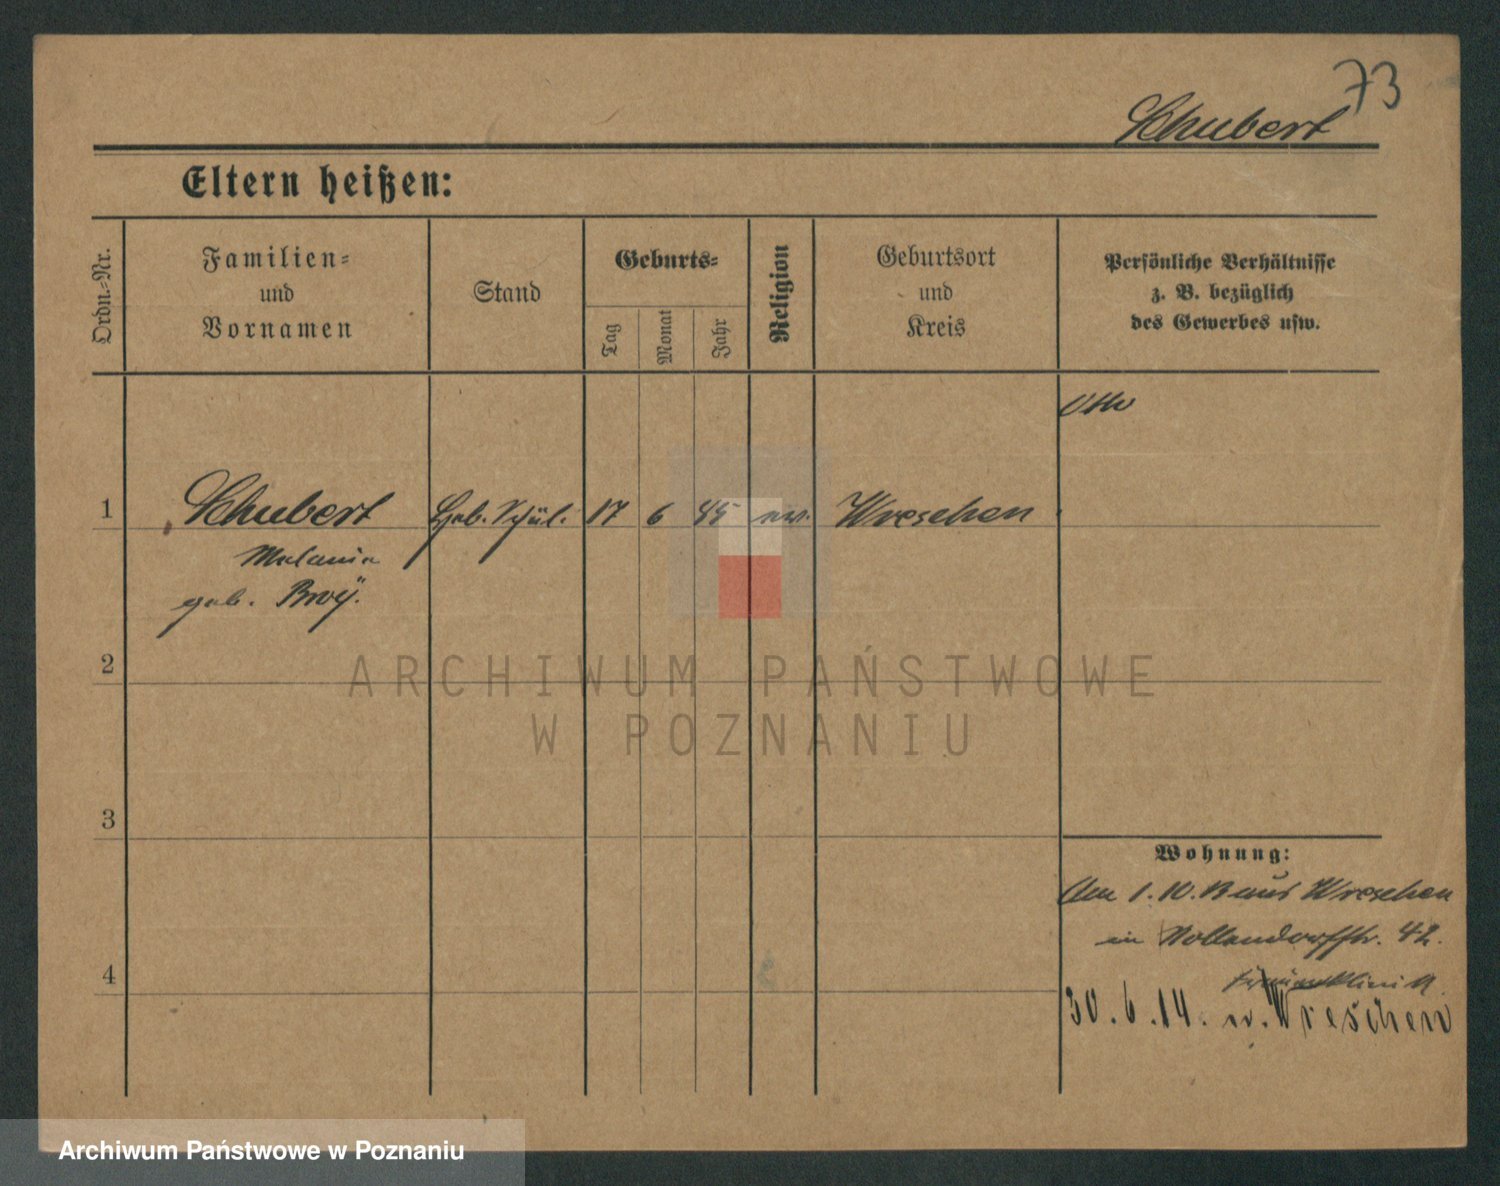 73
Schubert
Eltern heißen:
Ordn.=Nr.
Familien=
und
Vornamen
Stand
Geburts=
Tag
Monat
Jahr
Religion
Geburtsort
und
Kreis
Persönliche Verhältnisse
z. B. bezüglich
des Gewerbes usw.
1
Schubert
Heb. Schül.
17
6
85
ev.
Wreschen
Melanie
geb.
2
3
4
Wohnung:
Am 1. 10. 13 aus Wreschen
in Nollendorffstr. 42.
30.6.14. n. Wreschen
ARCHIWUM PAŃSTWOWE
W POZNANIU
Archiwum Państwowe w Poznaniu